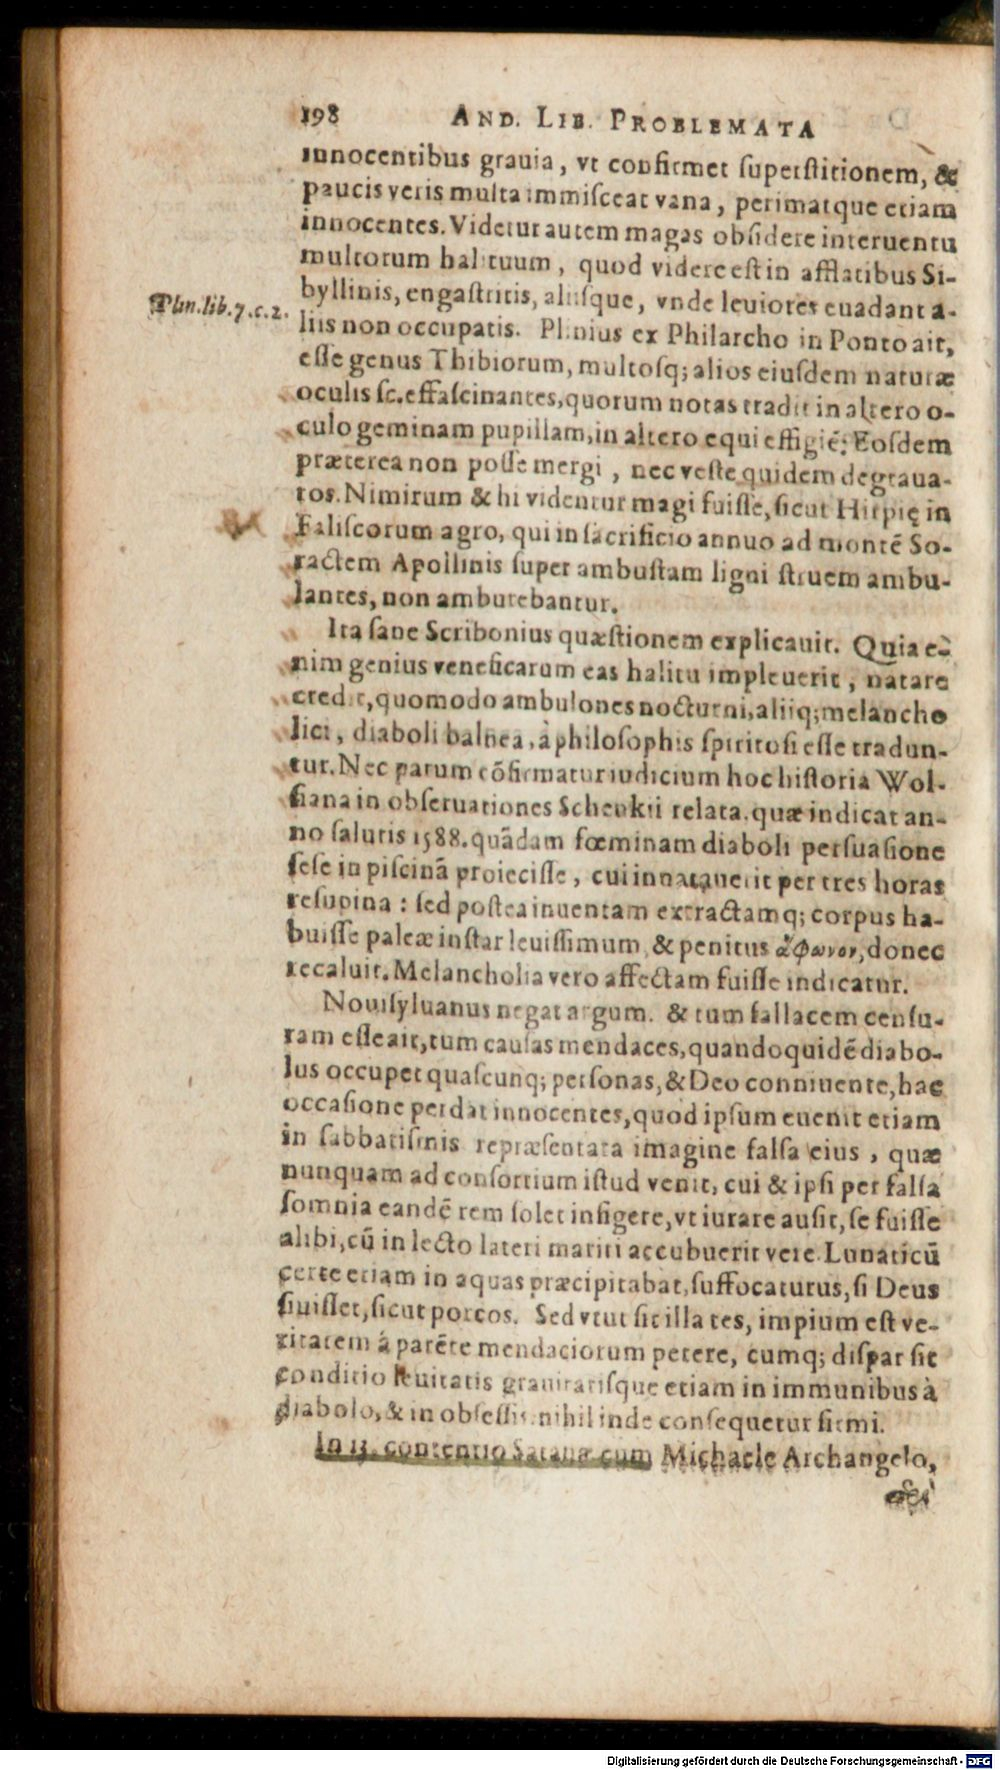 198 AND. LIB. PROBLEMATA
innocentibus grauia, vt confirmet superstitionem, &
paucis veris multa immisceat vana, perimatque etiam
innocentes. Videtur autem magas obsidere interuentu
multorum halituum, quod videre est in afflatibus Si-
byllinis, engastritis, aliisque, vnde leuiores euadant a-
Plin.lib.7.c.2.
liis non occupatis. Plinius ex Philarcho in Ponto ait,
esse genus Thibiorum, multosq; alios eiusdem naturæ
oculis sc. effascinantes, quorum notas tradit in altero o-
culo geminam pupillam, in altero equi effigiẽ: Eosdem
præterea non posse mergi, nec veste quidem degraua-
tos. Nimirum & hi videntur magi fuisse, sicut Hirpię in
Faliscorum agro, qui in sacrificio annuo ad montẽ So-
ractem Apollinis super ambustam ligni struem ambu-
lantes, non amburebantur.
Ita sane Scribonius quæstionem explicauit. Quia e-
nim genius veneficarum eas halitu impleuerit, natare
credit, quomodo ambulones nocturni, aliiq; melancho
lici, diaboli balnea, à philosophis spiritosi esse tradun-
tur. Nec parum cõfirmatur iudicium hoc historia Wol-
fiana in obseruationes Schenkii relata. quæ indicat an-
no salutis 1588. quãdam fœminam diaboli persuasione
sese in piscinã proiecisse, cui innatauerit per tres horas
resupina: sed postea inuentam extractamq; corpus ha-
buisse paleæ instar leuissimum, & penitus ἄφωνον, donec
recaluit. Melancholia vero affectam fuisse indicatur.
Nouisyluanus negat argum. & tum fallacem censu-
ram esse ait, tum causas mendaces, quandoquidẽ diabo-
lus occupet quascunq; personas, & Deo conniuente, hac
occasione perdat innocentes, quod ipsum euenit etiam
in sabbatismis repræsentata imagine falsa eius, quæ
nunquam ad consortium istud venit, cui & ipsi per falsa
somnia eandẽ rem solet infigere, vt iurare ausit, se fuisse
alibi, cũ in lecto lateri mariti accubuerit vere. Lunaticũ
certe etiam in aquas præcipitabat, suffocaturus, si Deus
siuisset, sicut porcos. Sed vtut sit illa res, impium est ve-
ritatem á parẽte mendaciorum petere, cumq; dispar sit
conditio leuitatis grauitatisque etiam in immunibus à
diabolo, & in obsessis. nihil inde consequetur firmi.
In 13. contentio Satanæ cum Michaele Archangelo,
Digitalisierung gefördert durch die Deutsche Forschungsgemeinschaft - DFG